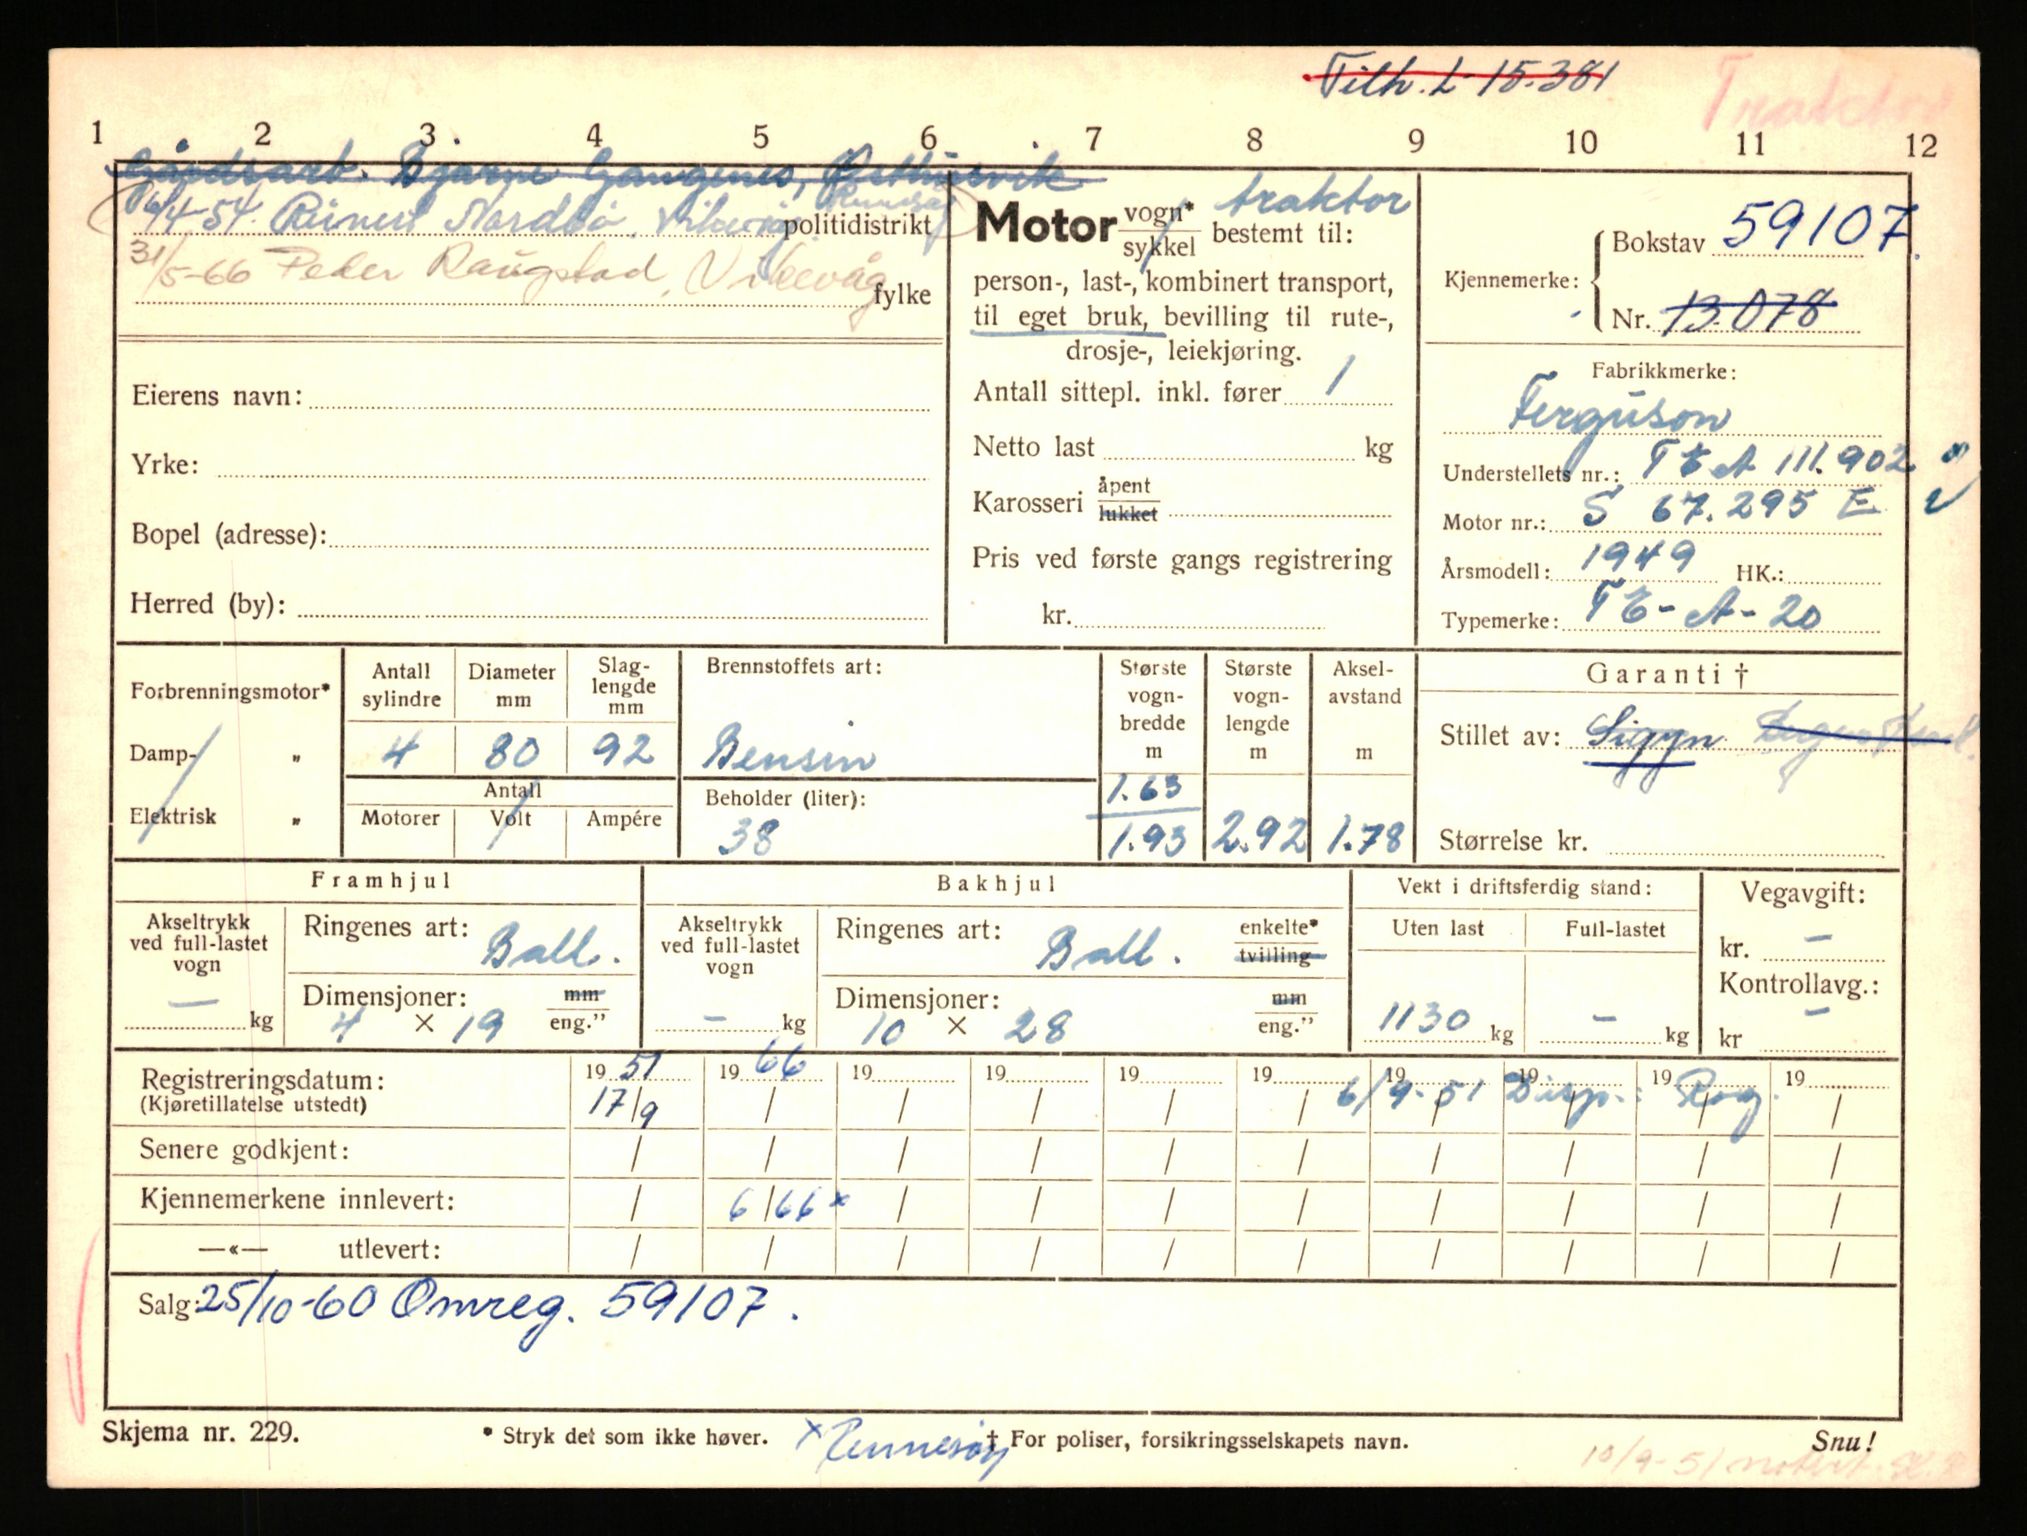 Tilh. L-15.381
Traktor
1 2 3 4 5 6 7 8 9 10 11 12
Gårdsarb. Bjarne Gangenes, Østhusvik
Rennesøy
6/4-54. Reinert Nordbø, Vikevåg politidistrikt
31/5-66 Peder Raugstad, Vikevåg fylke
Eierens navn:
Yrke:
Bopel (adresse):
Herred (by):
Motor vogn* / sykkel bestemt til: traktor
person-, last-, kombinert transport,
til eget bruk, bevilling til rute-,
drosje-, leiekjøring.
Antall sittepl. inkl. fører 1
Netto last kg
Karosseri åpent / lukket
Pris ved første gangs registrering
kr.
Kjennemerke: Bokstav 59107
Nr. 13.078
Fabrikkmerke:
Ferguson
Understellets nr.: TEA 111.902
Motor nr.: S 67.295 E
Årsmodell: 1949 HK.:
Typemerke: TE-A-20
Forbrenningsmotor*
Damp- „
Elektrisk „
Antall sylindre 4
Diameter mm 80
Slag-lengde mm 92
Antall
Motorer Volt Ampére
Brennstoffets art:
Bensin
Beholder (liter):
38
Største vogn-bredde m 1.63 1.93
Største vogn-lengde m 2.92
Aksel-avstand m 1.78
Garanti †
Stillet av: Sigyn
Størrelse kr.
Framhjul
Akseltrykk ved full-lastet vogn — kg
Ringenes art: Ball.
Dimensjoner: 4 × 19 mm eng."
Bakhjul
Akseltrykk ved full-lastet vogn — kg
Ringenes art: Ball. enkelte* tvilling
Dimensjoner: 10 × 28 mm eng."
Vekt i driftsferdig stand:
Uten last Full-lastet
1130 kg — kg
Vegavgift:
kr. —
Kontrollavg.:
kr —
Registreringsdatum: 19 51 19 66 19 19 19 19 19 19 19 19
(Kjøretillatelse utstedt) 17/9 / / / / / / / / /
6/9-51 Disp.: Rog.
Senere godkjent: / / / / / / / / / /
Kjennemerkene innlevert: / 6/66 x / / / / / / / /
—«— utlevert: / / / / / / / / / /
Salg: 25/10-60 Omreg. 59107.
Skjema nr. 229. * Stryk det som ikke høver. x Rennesøy † For poliser, forsikringsselskapets navn. Snu!
10/9-51 notert